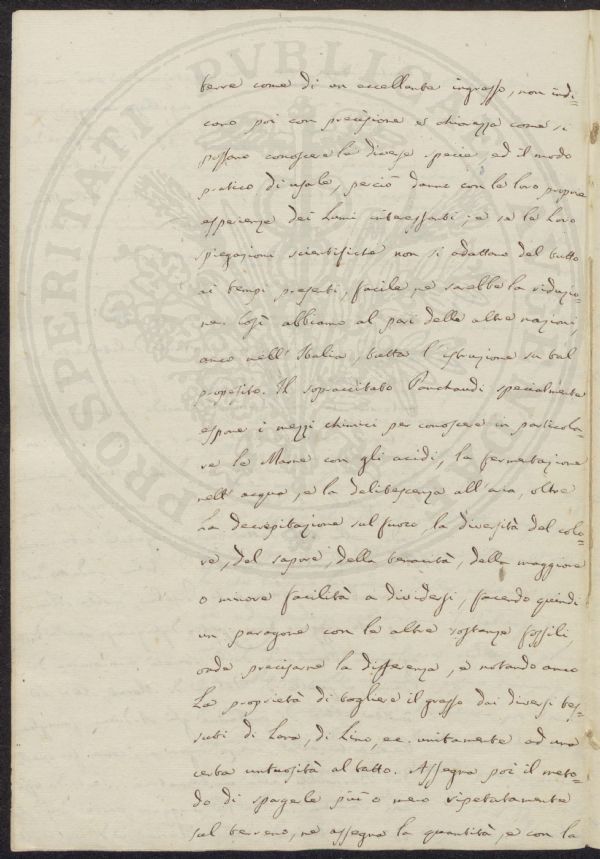 terre come di un eccellente ingrasso, non indi-
cano poi con precisione e chiarezza come si
possano conoscere le diverse specie, ed il modo
pratico di usarle, perciò danno con le loro proprie
esperienze dei Lumi interessanti; e se le Loro
spiegazioni scientifiche non si adattano del tutto
ai tempi presenti, facile ne sarebbe la riduzio-
ne. Così abbiamo al pari delle altre nazioni,
anco nell'Italia, tutta l'istruzione su tal
proposito. Il sopraccitato specialmente
espone i mezzi chimici per conoscere in particola-
re le Marne con gli acidi, la fermentazione
nell'acqua, e la delitescenza all'aria, oltre
La decrepitazione sul fuoco, la diversità del colo-
re, del sapore, della tenacità, della maggiore
o minore facilità a dividersi, facendo quindi
un paragone con le altre sostanze fossili,
onde precisarne la differenza, e notando anco
La proprietà di togliere il grasso dai diversi tes-
suti di Lana, di Lino, ec. unitamente ad una
certa untuosità al tatto. Assegna poi il meto-
do di spargerle più o meno ripetutamente
sul terreno, ne assegna la quantità, e con la
PROSPERITATI PVBLICAE